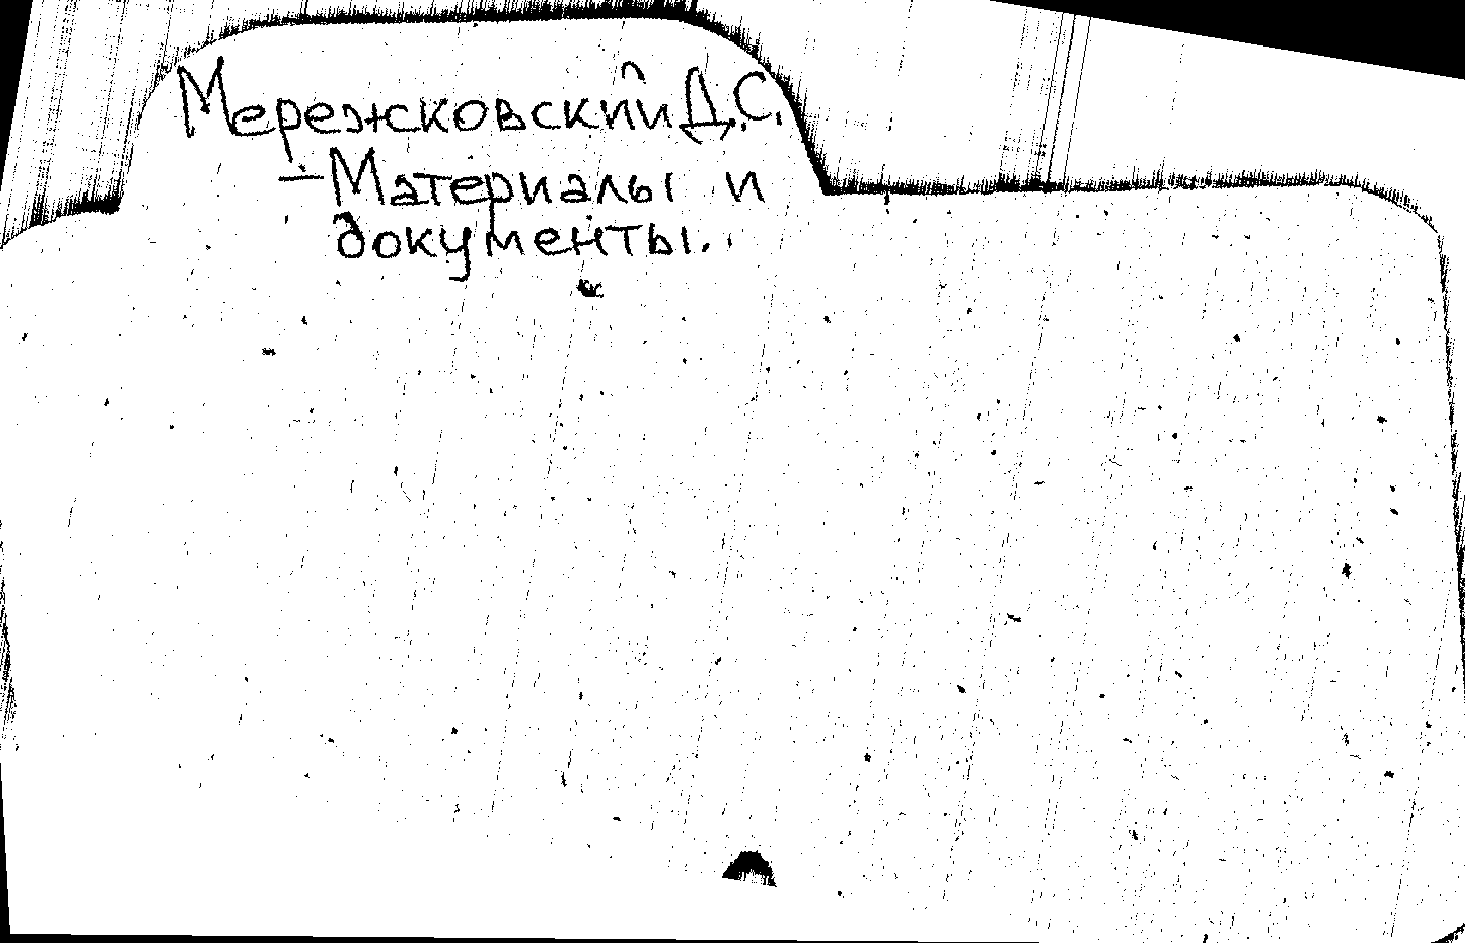 Мережковский Д.С.
– Материалы и
документы.